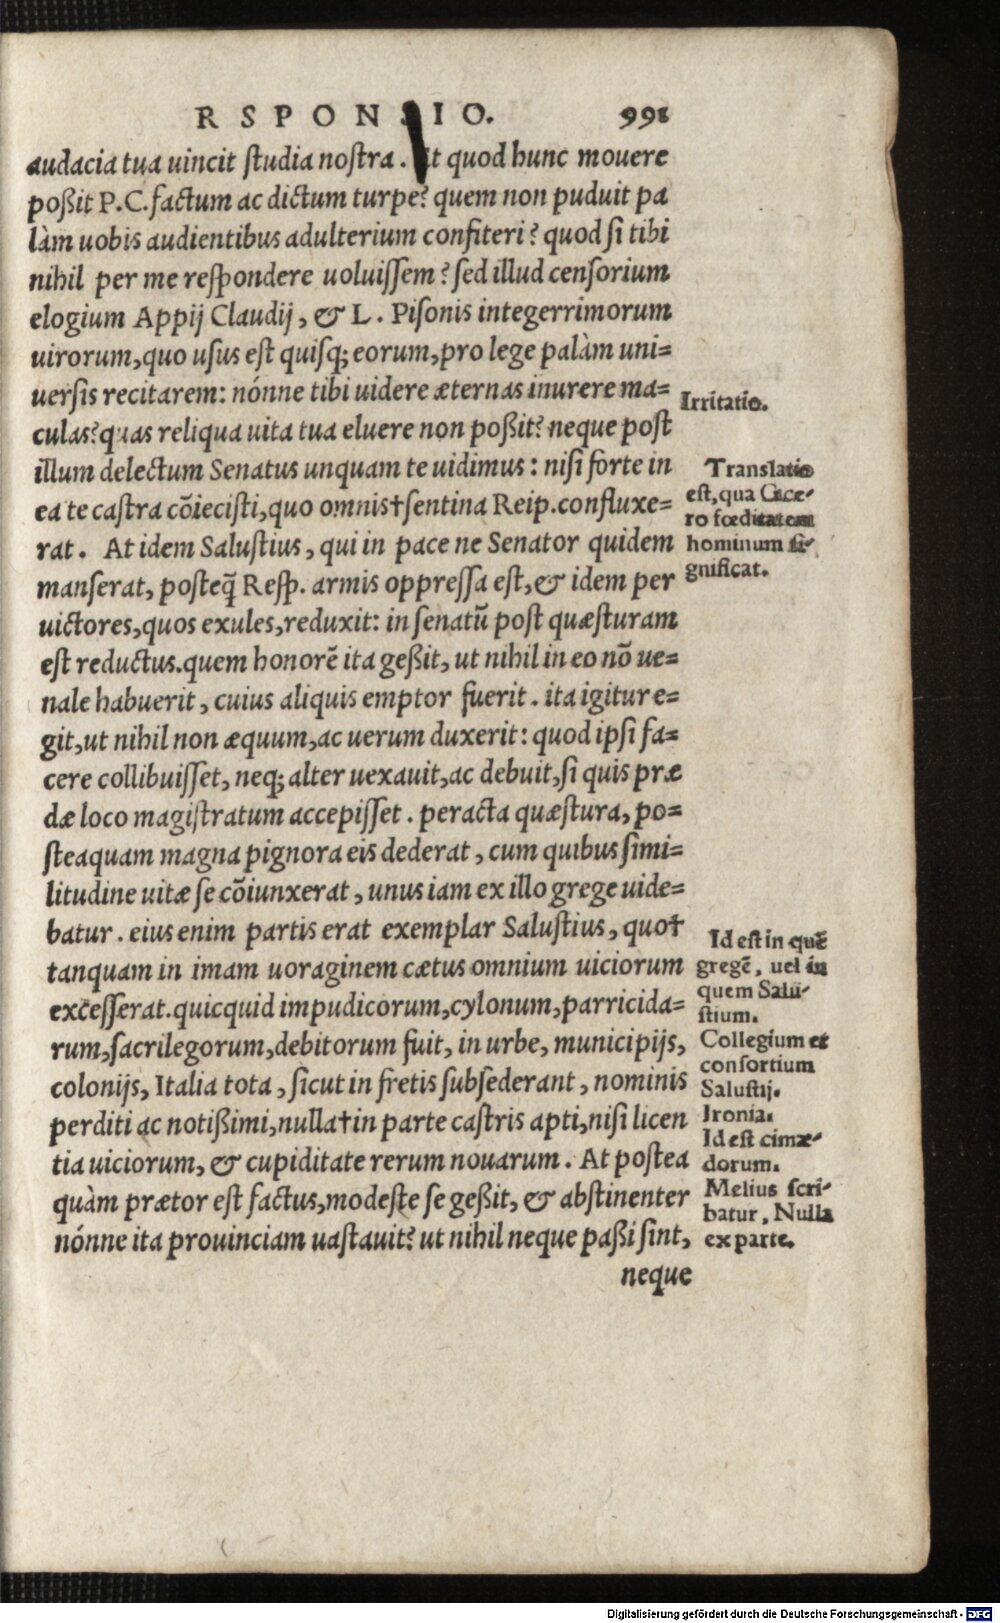 RSPONSIO. 991
audacia tua uincit ſtudia noſtra. t quod hunc mouere
poßit P.C. factum ac dictum turpe? quem non puduit pa
làm uobis audientibus adulterium confiteri? quod ſi tibi
nihil per me reſpondere uoluiſſem? ſed illud cenſorium
elogium Appij Claudij, & L. Piſonis integerrimorum
uirorum, quo uſus est quiſq; eorum, pro lege palàm uni=
uerſis recitarem: nónne tibi uidere æternas inurere ma=
culas? quas reliqua uita tua eluere non poßit? neque post
illum delectum Senatus unquam te uidimus: niſi forte in
ea te caſtra cõiecisti, quo omnis†ſentina Reip. confluxe=
rat. At idem Saluſtius, qui in pace ne Senator quidem
manſerat, posteq̃ Reſp. armis oppreſſa est, & idem per
uictores, quos exules, reduxit: in ſenatũ post quæſturam
est reductus. quem honorẽ ita geßit, ut nihil in eo nõ ue=
nale habuerit, cuius aliquis emptor fuerit. ita igitur e=
git, ut nihil non æquum, ac uerum duxerit: quod ipſi fa=
cere collibuiſſet, neq; alter uexauit, ac debuit, ſi quis præ
dæ loco magistratum accepiſſet. peracta quæſtura, po=
ſteaquam magna pignora eis dederat, cum quibus ſimi=
litudine uitæ ſe cõiunxerat, unus iam ex illo grege uide=
batur. eius enim partis erat exemplar Saluſtius, quo†
tanquam in imam uoraginem cætus omnium uiciorum
exceſſerat. quicquid impudicorum, cylonum, parricida=
rum, ſacrilegorum, debitorum fuit, in urbe, municipijs,
colonijs, Italia tota, ſicut in fretis ſubſederant, nominis
perditi ac notißimi, nulla†in parte caſtris apti, niſi licen
tia uiciorum, & cupiditate rerum nouarum. At postea
quàm prætor est factus, modeſte ſe geßit, & abſtinenter
nónne ita prouinciam uaſtauit? ut nihil neque paßi ſint,
neque
Irritatio.
Translatio
eſt, qua Cice-
ro fœditatem
hominum ſi-
gnificat.
Id eſt in quẽ
gregẽ, uel in
quem Salu-
ſtium.
Collegium et
conſortium
Saluſtij.
Ironia.
Id eſt cimæ-
dorum.
Melius ſcri-
batur, Nulla
ex parte.
Digitalisierung gefördert durch die Deutsche Forschungsgemeinschaft - DFG